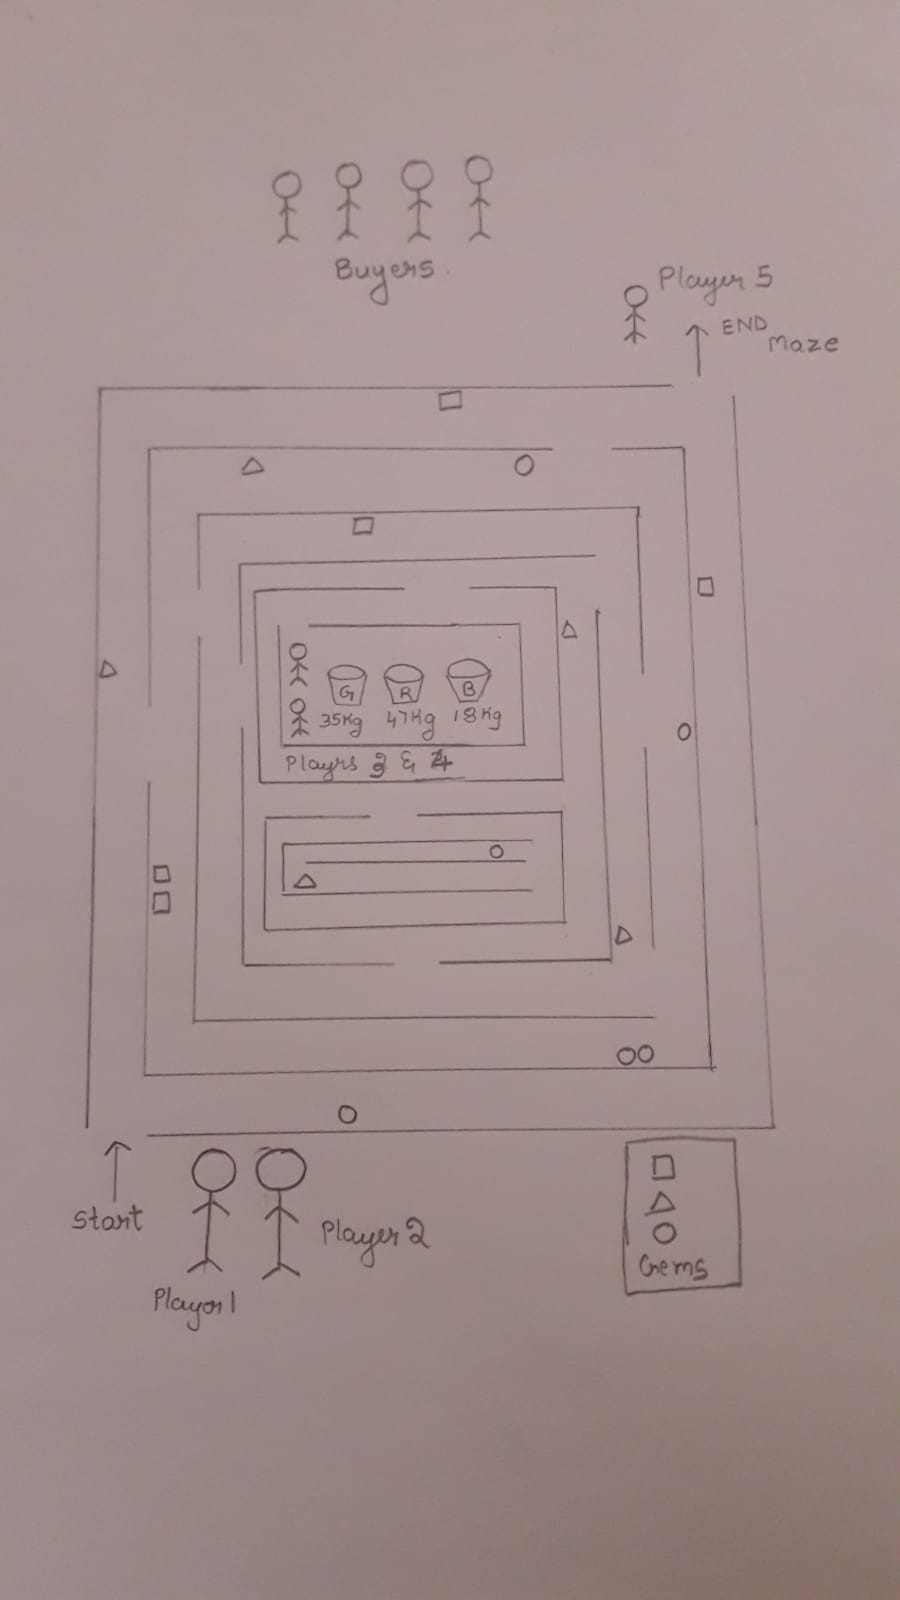 Buyers.
Player 5
END
Maze
G R B
35Kg 47Kg 18Kg
Playrs 3 & 4
Start
Player 2
Player 1
Gems